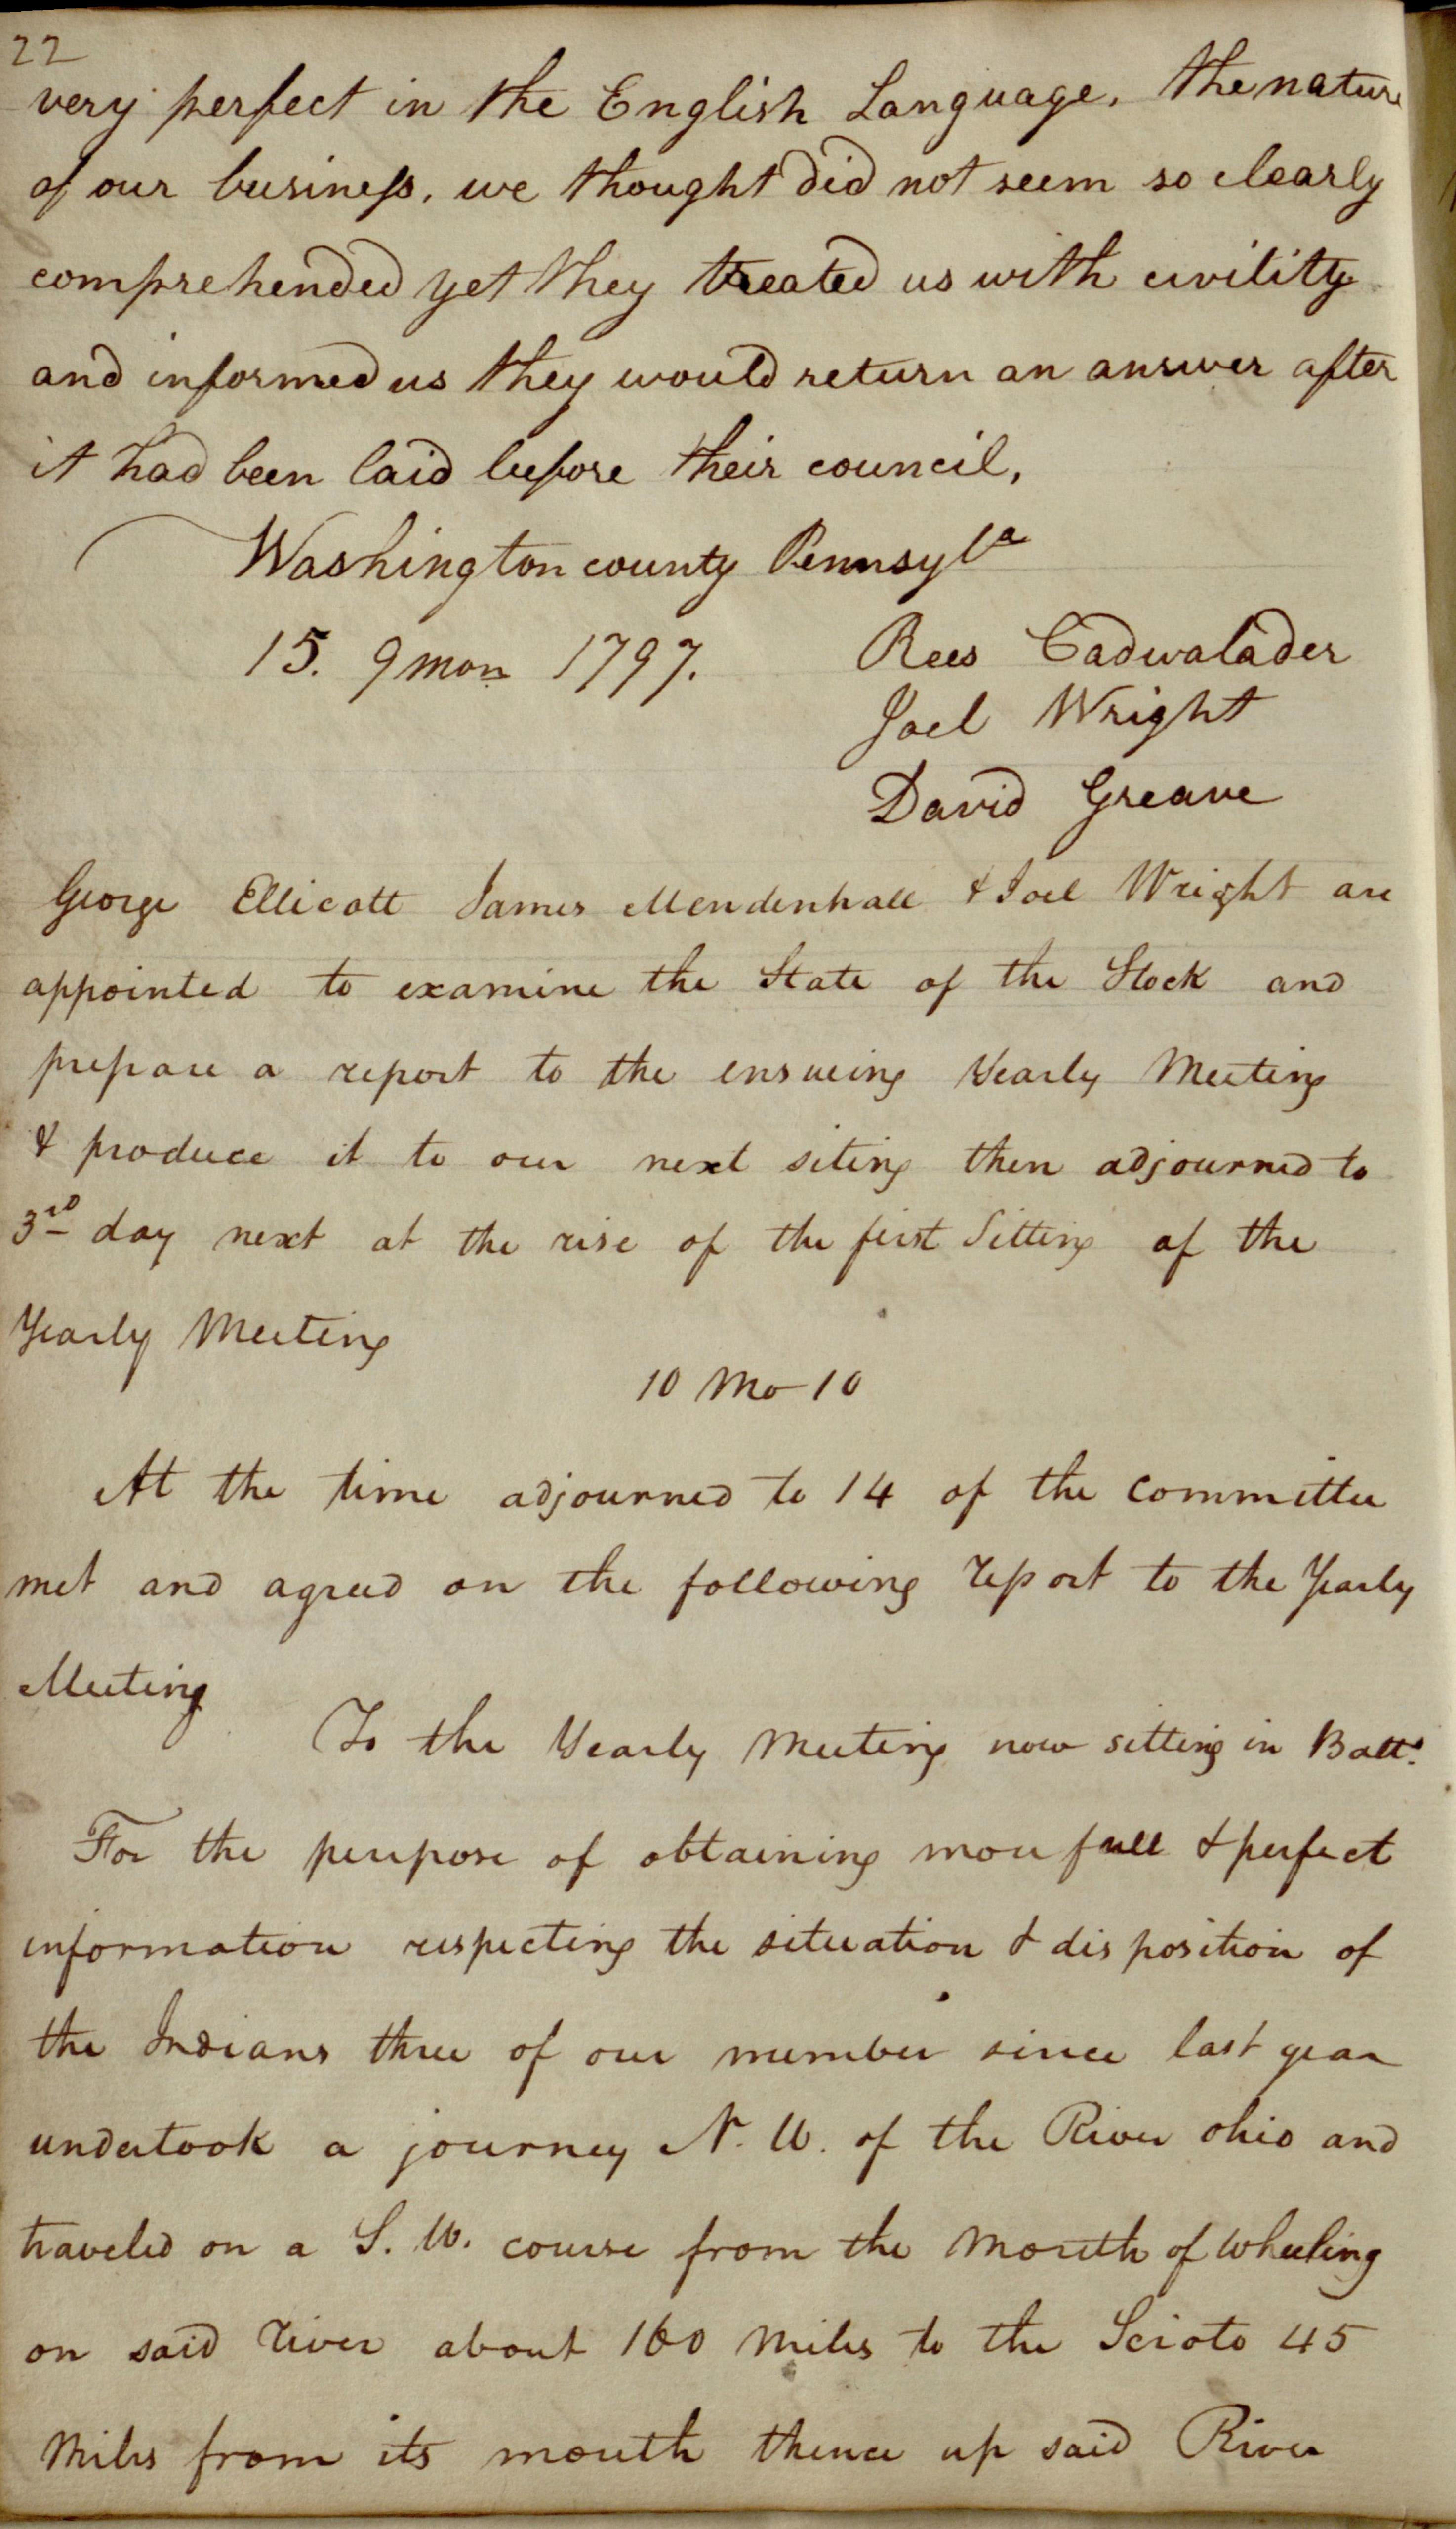 22
very perfect in the English Language, the nature
of our business, we thought did not seem so clearly
comprehended yet they treated us with civility
and informed us they would return an answer after
it had been laid before their council,
Washington county Pennsylª
15. 9 mon 1797.
Rees Cadwalader
Joel Wright
David Greave
George Ellicott James Mendenhall & Joel Wright are
appointed to examine the State of the Stock and
prepare a report to the ensueing Yearly Meeting
& produce it to our next siting then adjourned to
3rd day next at the rise of the first Sitting of the
Yearly Meeting
10 Mo 10
At the time adjourned to 14 of the committee
met and agreed on the following report to the Yearly
Meeting
To the Yearly Meeting now sitting in Balto.
For the purpose of obtaining more full & perfect
information respecting the situation & disposition of
the Indians three of our number since last year
undertook a journey N. W. of the River ohio and
traveled on a S. W. course from the Mouth of Wheeling
on said river about 160 Miles to the Scioto 45
Miles from its mouth thence up said River